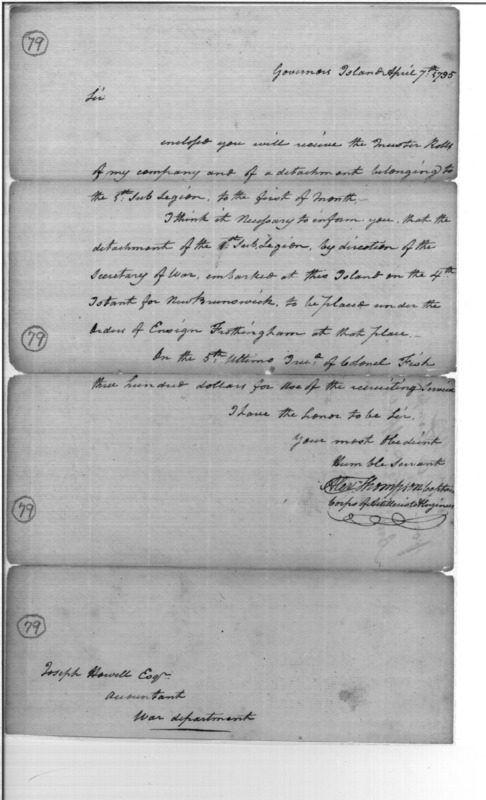 79
Governors Island April 7th. 1795
Sir
enclosed you will receive the Muster Rolls
of my company and of a detachment belonging to
the 5th. Sub Legion, to the first of Month,
I think it Necessary to inform you, that the
detachment of the 1st Sub, Legion, by direction of the
Secretary of War, embarked at this Island on the 4th
Istant for New Brunswick, to be placed under the
Orders of Ensign Frothingham at that place.
79
On the 5th. Ultimo of Colonel Fish
three hundred dollars for use of the recruiting Service
I have the honor to be Sir,
Your most Obedient
Humble Servant
Alex: Thompson
Corps of
79
79
Joseph Howell Esqr.
Accountant
War department